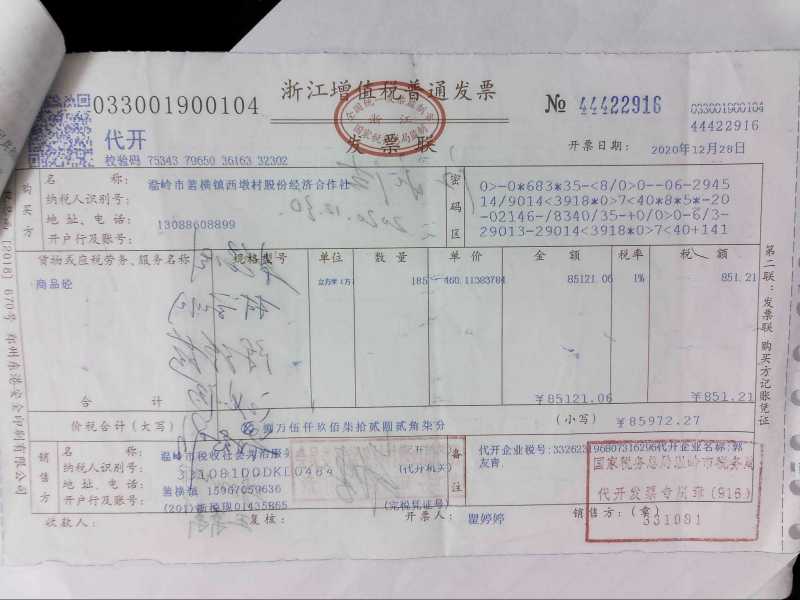 033001900104
浙江增值税普通发票
№ 44422916
033001900104
44422916
代开
发票联
校验码 75343 79650 36163 32302
开票日期: 2020年12月28日
购买方
名称: 温岭市箬横镇西墩村股份经济合作社
纳税人识别号:
地址、电话: 13088608899
开户行及账号:
密码区
0>-0*683*35-<8/0>-06-2945
14/9014<3918*0>7<40*8*5*-20
-02146-/8340/35-+0/0>-6/3-
29013-29014<3918*0>7<40+141
2020.12.30.
货物或应税劳务、服务名称 规格型号 单位 数量 单价 金额 税率 税额
商品砼 立方米(方) 185 460.11383784 85121.06 1% 851.21
合计 ¥85121.06 ¥851.21
价税合计(大写) 捌万伍仟玖佰柒拾贰圆贰角柒分 (小写) ¥85972.27
销售方
名称:
纳税人识别号:
地址、电话: 箬横镇 15967059636
开户行及账号:
(代开机关)
(完税凭证号)
备注
代开企业税号:332623196807316296代开企业名称:郭
友青
国家税务总局温岭市税务局
代开发票专用章(916)
331081
收款人:
复核:
开票人: 瞿婷婷
销售方:(章)
第二联:发票联 购买方记账凭证
[2018] 670号 郑州东港安全印刷有限公司